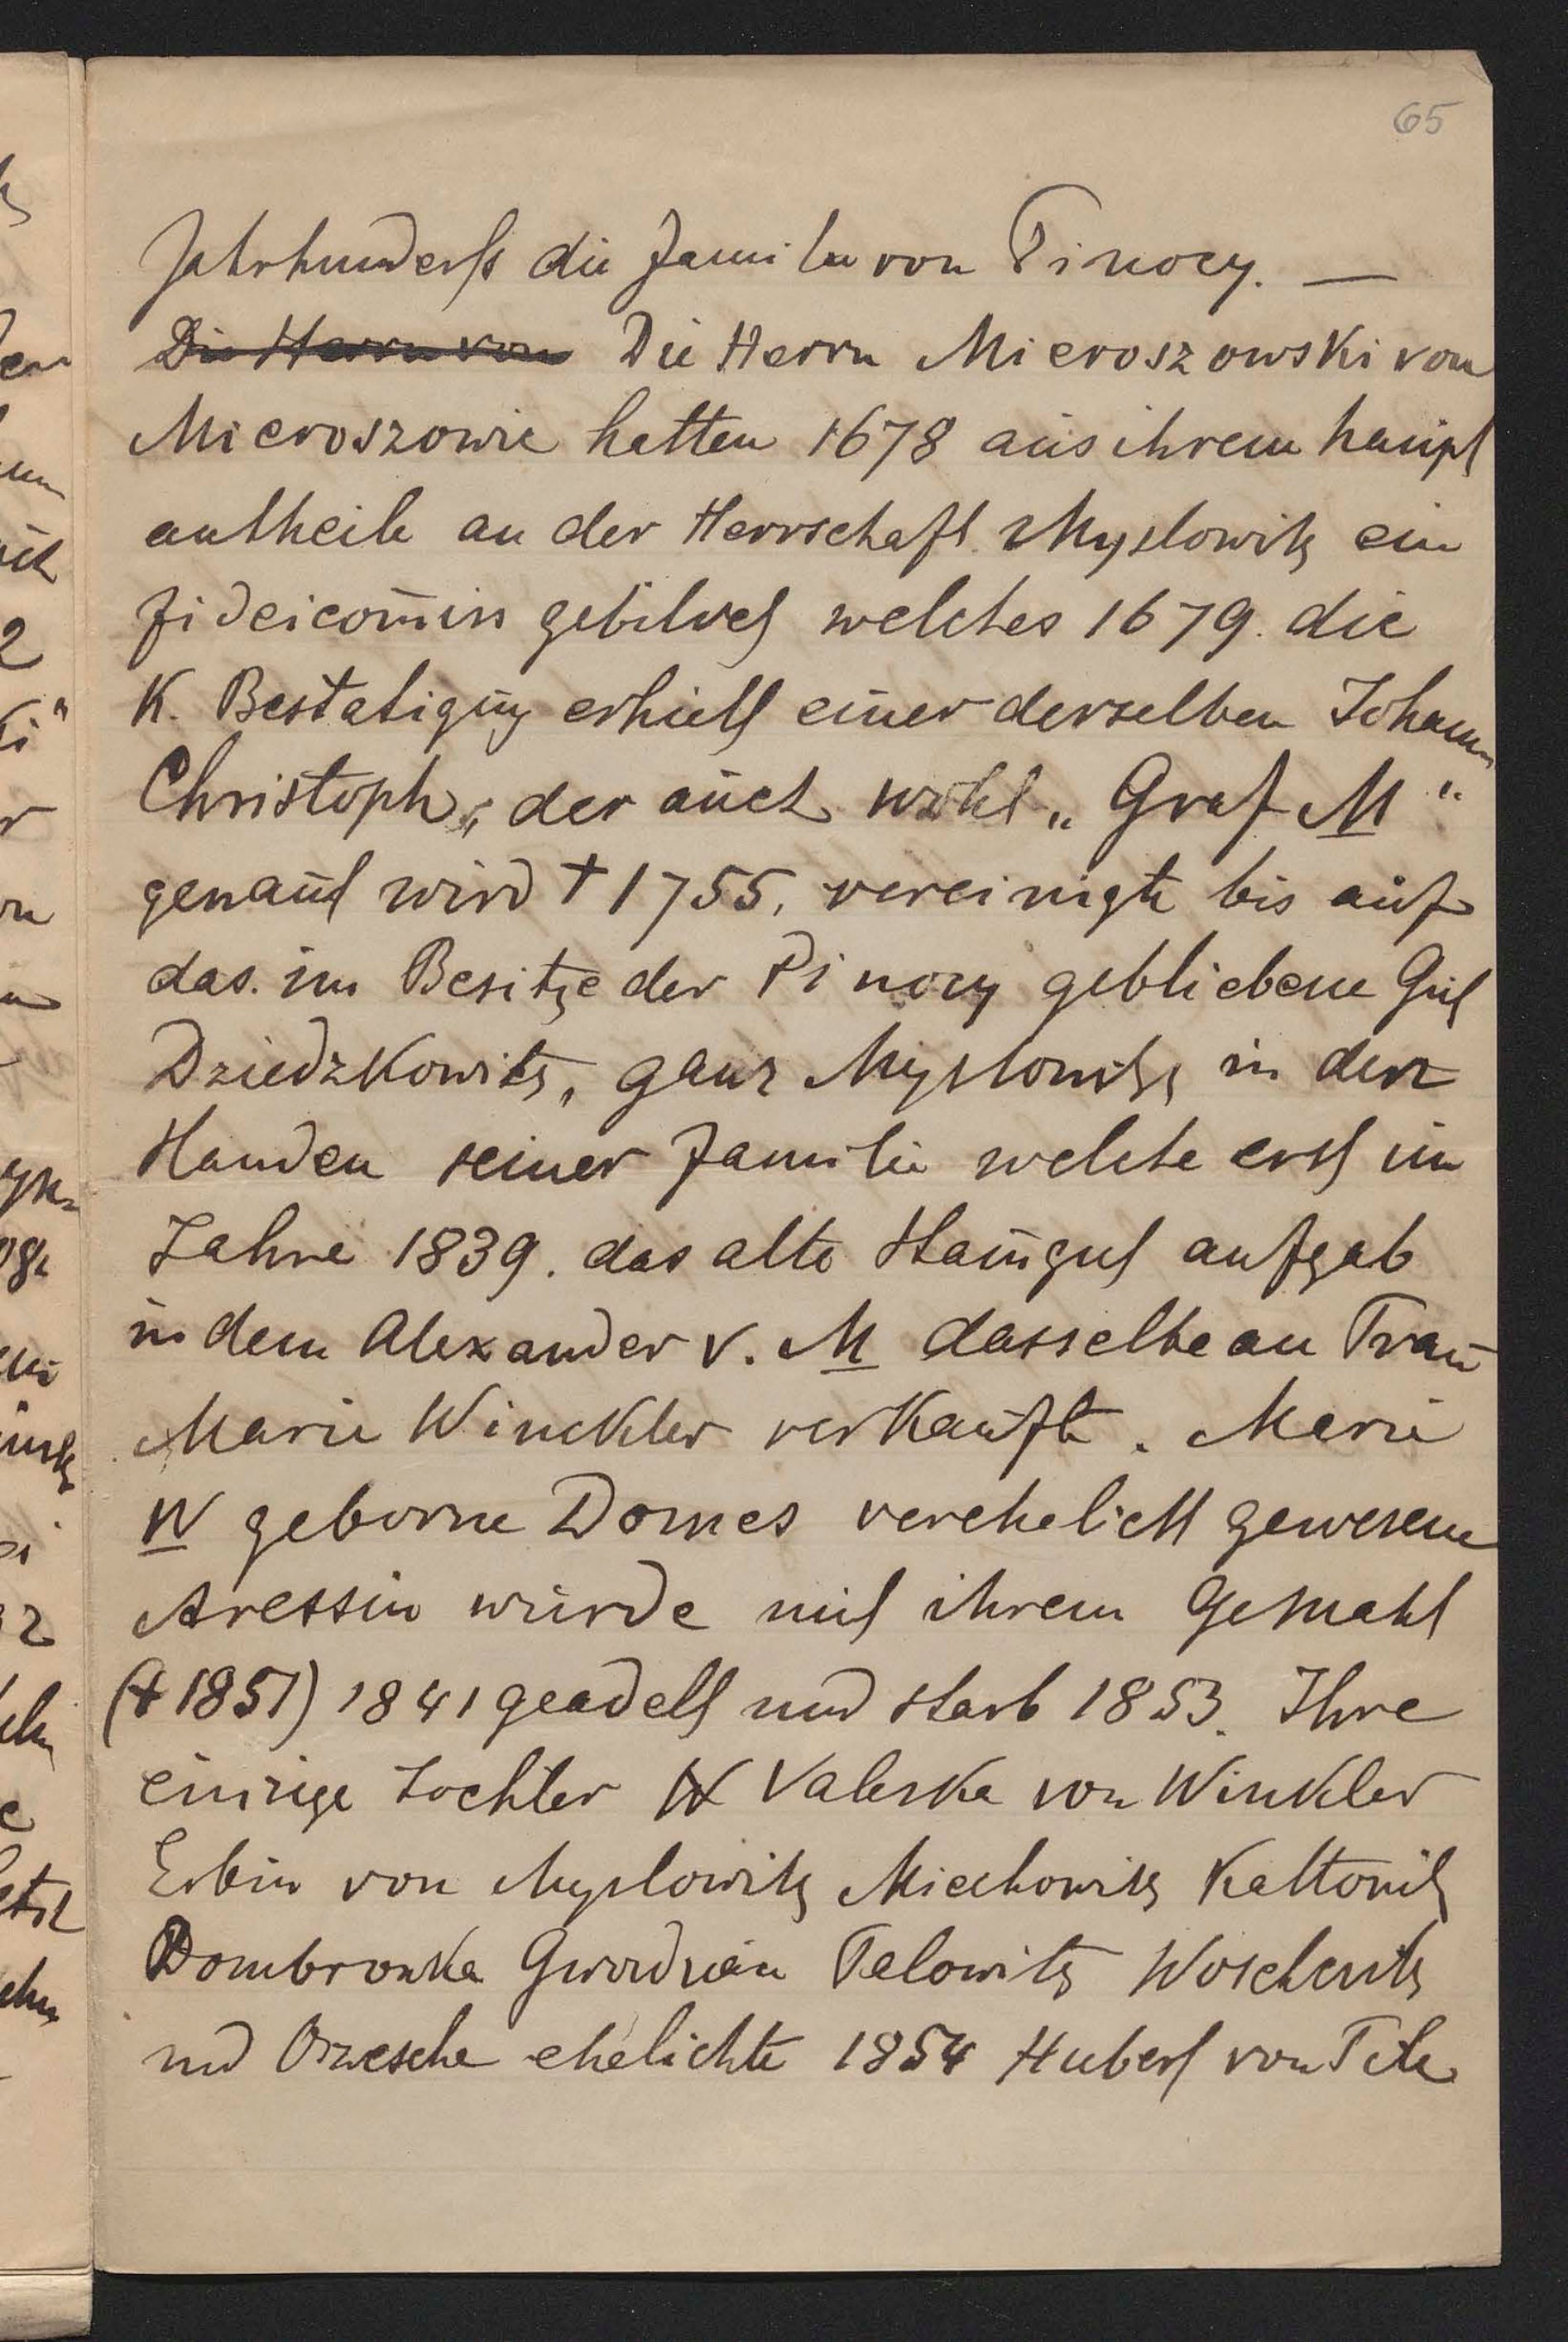 65
Jahrhunderts die Familie von Pinocy. —
Die Herrn von Die Herrn Mieroszowski von
Mieroszowie hatten 1678 aus ihrem haupt
antheile an der Herrschaft Myslowitz ein
fideicom̄iss gebildet welches 1679. die
K. Bestatigung erhielt einer derselben Johann
Christoph, der auch wohl „Graf M"
genant wird † 1755, vereinigte bis auf
das im Besitze der Pinocy gebliebene Gut
Dziedzkowitz, ganz Myslowitz in den
Handen seiner Familie welche erst im
Jahre 1839. das alte Stam̄gut aufgab
in dem Alexander v. M dasselbe an Frau
Marie Winckler verkaufte. Marie
W geborne Domes verehelicht gewesene
Aressin wurde mit ihrem Gemahl
(† 1851) 1841 geadelt und starb 1853. Ihre
einzige Tochter W Valeska von Winkler
Erbin von Myslowitz Miechowitz Kattowitz
Dombrowka Gwordzian Woschczitz
und Orzesche ehelichte 1854 Hubert von Tile